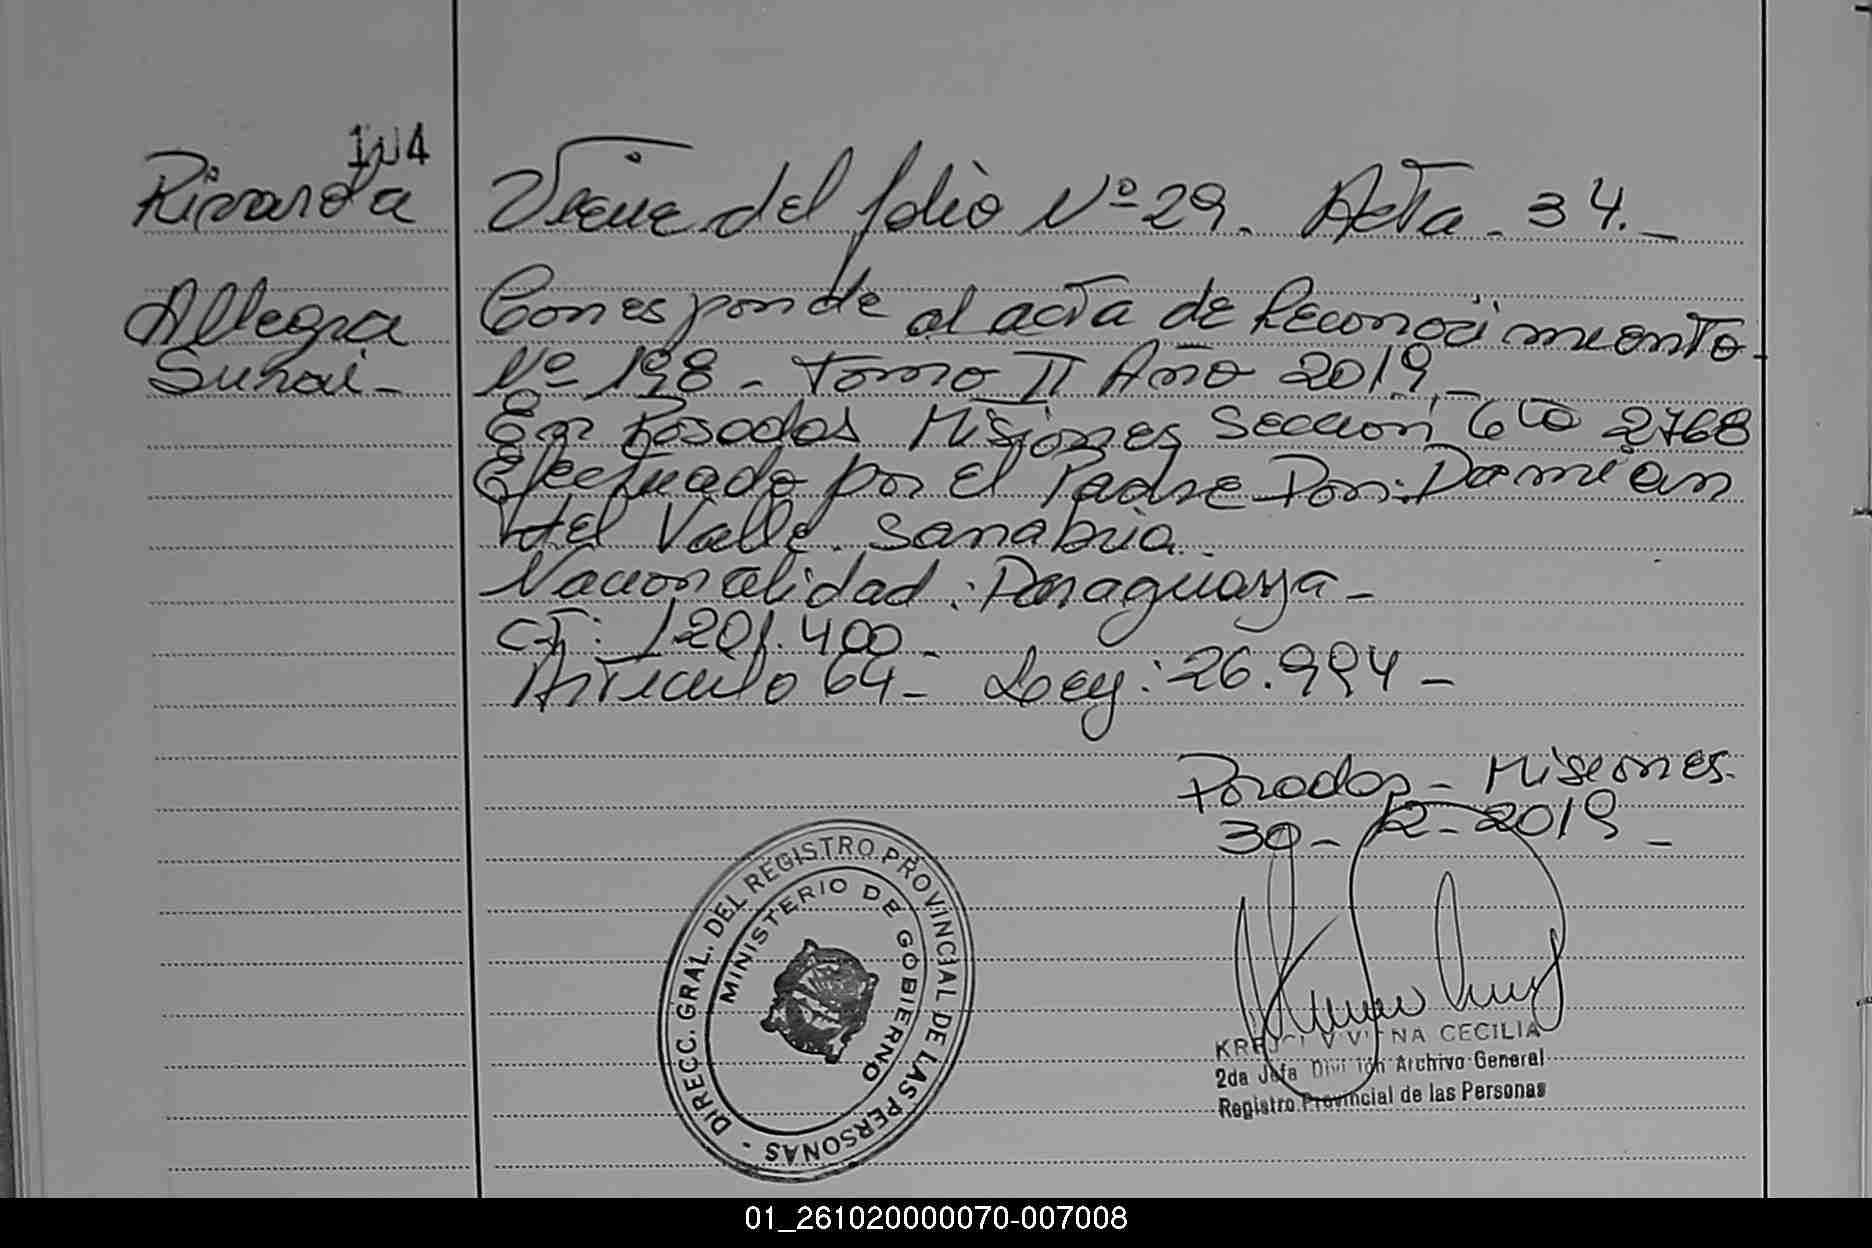 104
Allegra
Viene del folio Nº 29. Acta - 34.-
Corresponde al acta de Reconocimiento
Nº 198 - Tomo II Año 2019.-
En Posadas Misiones Sección 6ta 2768
Efectuado por el Padre Don: Damian
del Valle Sanabria.
Nacionalidad: Paraguaya -
CI: 1201.400 -
Articulo 64 - Ley: 26.994 -
Posadas - Misiones.
30 - 12 - 2019 -
DIRECC. GRAL. DEL REGISTRO PROVINCIAL DE LAS PERSONAS -
MINISTERIO DE GOBIERNO
CECILIA
2da Jefa División Archivo General
Registro Provincial de las Personas
01_261020000070-007008